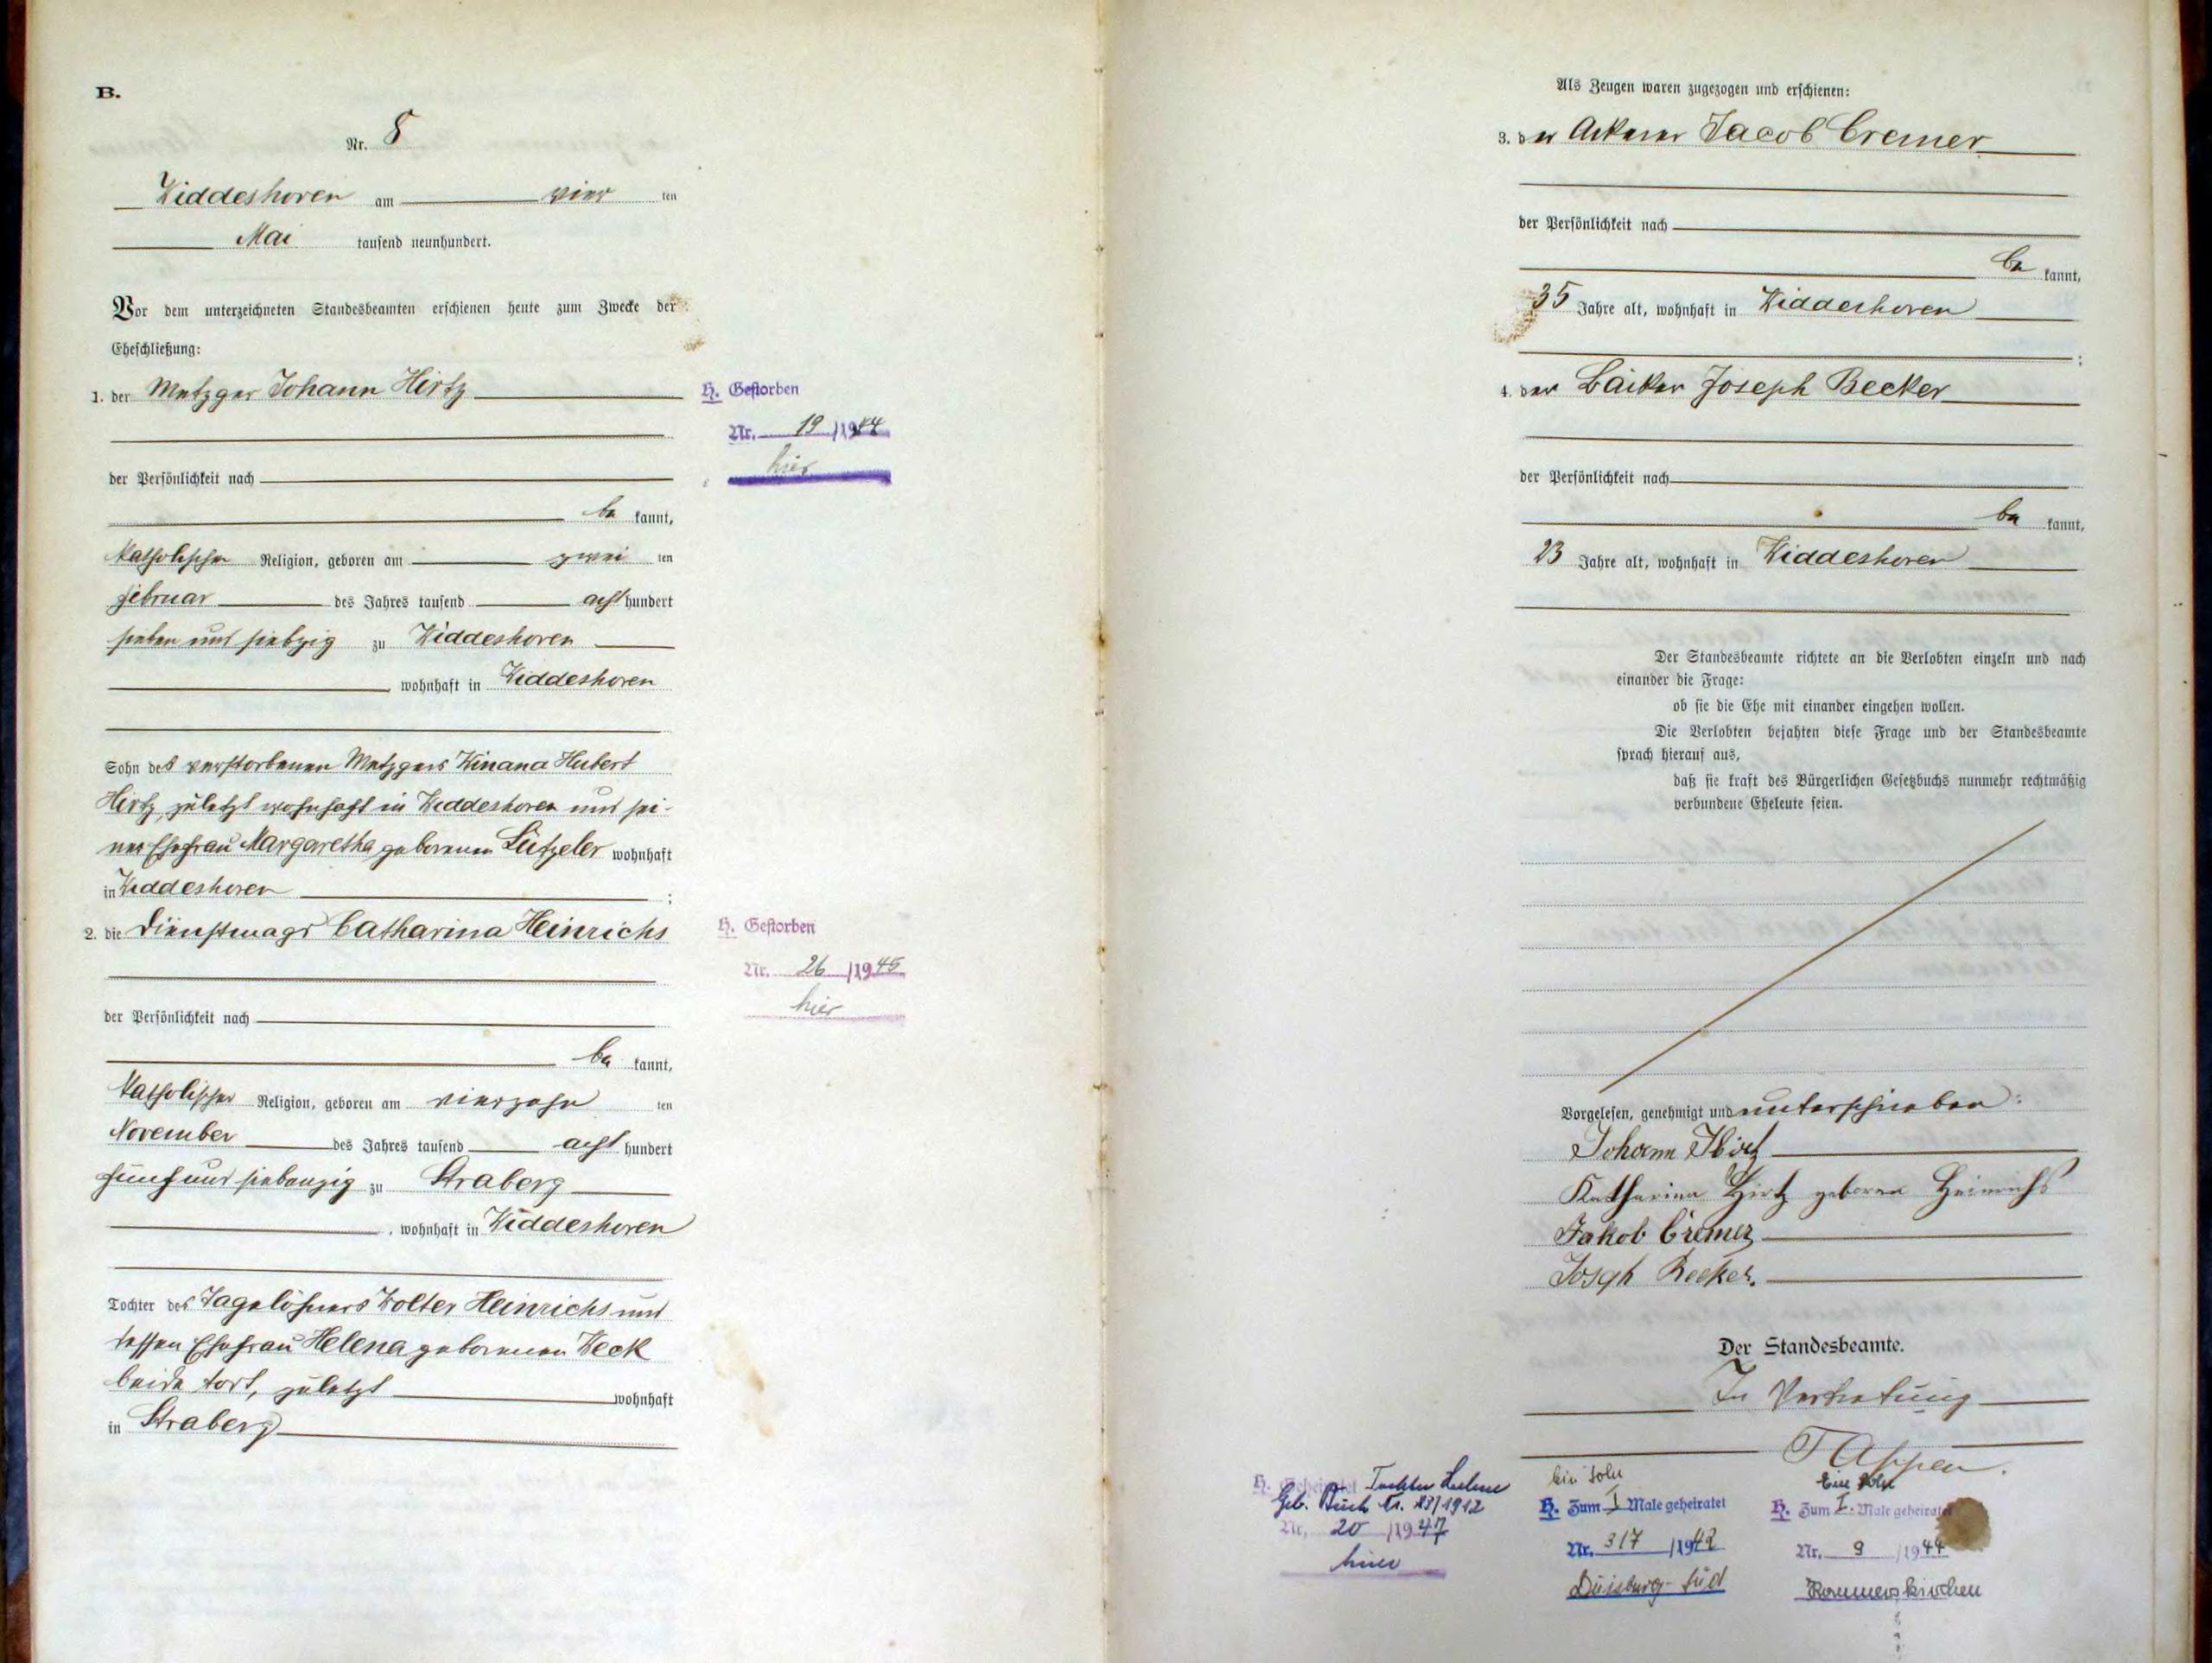 B.
Nr. 8
Widdeshoven am vier ten
Mai tausend neunhundert.
Vor dem unterzeichneten Standesbeamten erschienen heute zum Zwecke der
Eheschließung:
1. der Metzger Johann Hirtz
der Persönlichkeit nach
be kannt,
katholischer Religion, geboren am zwei ten
Februar des Jahres tausend acht hundert
sieben und siebzig zu Widdeshoven
, wohnhaft in Widdeshoven
Sohn des verstorbenen Metzgers Winand Hubert
Hirtz, zuletzt wohnhaft in Widdeshoven und sei-
ner Ehefrau Margaretha geborenen Lützeler wohnhaft
in Widdeshoven ;
2. die Dienstmagd Catharina Heinrichs
der Persönlichkeit nach
be kannt,
katholischer Religion, geboren am vierzehn ten
November des Jahres tausend acht hundert
fünf und siebenzig zu Straberg
, wohnhaft in Widdeshoven
Tochter des Tagelöhners Wolter Heinrichs und
dessen Ehefrau Helena geborenen Weck
beide tort, zuletzt wohnhaft
in Straberg
H. Gestorben
Nr. 19 /1944
hier
H. Gestorben
Nr. 26 /1945
hier
Als Zeugen waren zugezogen und erschienen:
3. der Ackerer Jacob Cremer
der Persönlichkeit nach
be kannt,
35 Jahre alt, wohnhaft in Widdeshoven
;
4. der Bäcker Joseph Becker
der Persönlichkeit nach
be kannt,
23 Jahre alt, wohnhaft in Widdeshoven
Der Standesbeamte richtete an die Verlobten einzeln und nach
einander die Frage:
ob sie die Ehe mit einander eingehen wollen.
Die Verlobten bejahten diese Frage und der Standesbeamte
sprach hierauf aus,
daß sie kraft des Bürgerlichen Gesetzbuchs nunmehr rechtmäßig
verbundene Eheleute seien.
Vorgelesen, genehmigt und unterschrieben:
Johann Hirtz
Katharina Hirtz geborene Heinrichs
Jakob Cremer
Joseph Becker.
Der Standesbeamte.
In Vertretung
Tappen.
H. Geheiratet Tochter
Geb. Buch Nr. /1912
Nr. 20 /1947
hier
Ein Sohn
H. Zum I Male geheiratet
Nr. 317 /1942
Duisburg-Süd
Ein Sohn
H. Zum I. Male geheiratet
Nr. 9 /1944
Rommerskirchen